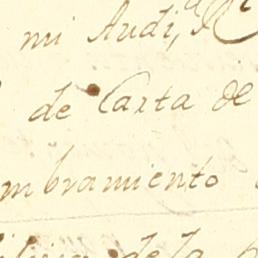 mi Audi,ª R
de Carta de
mbramiento
de la